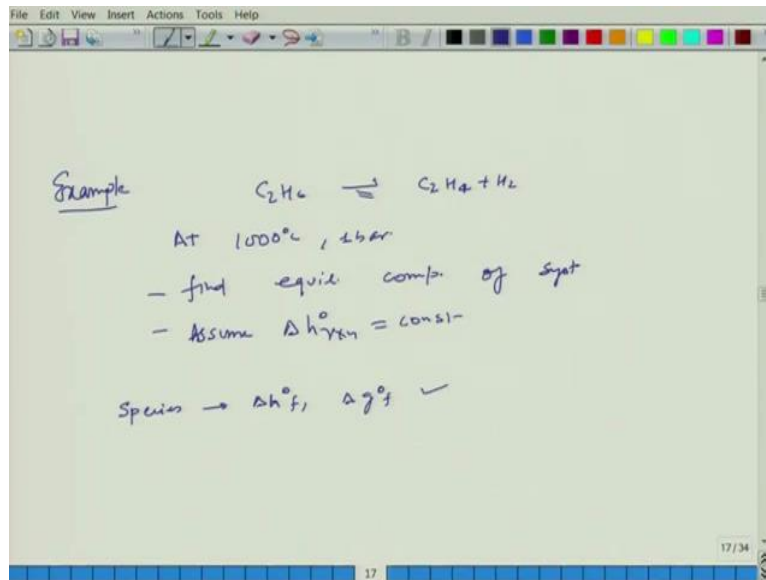 File Edit View Insert Actions Tools Help
Example C2H6 ⇌ C2H4 + H2
At 1000°C, 1bar
- find equil. comp. of syst
- Assume Δh°rxn = const
Species → Δh°f, Δg°f ✓
17/34
17